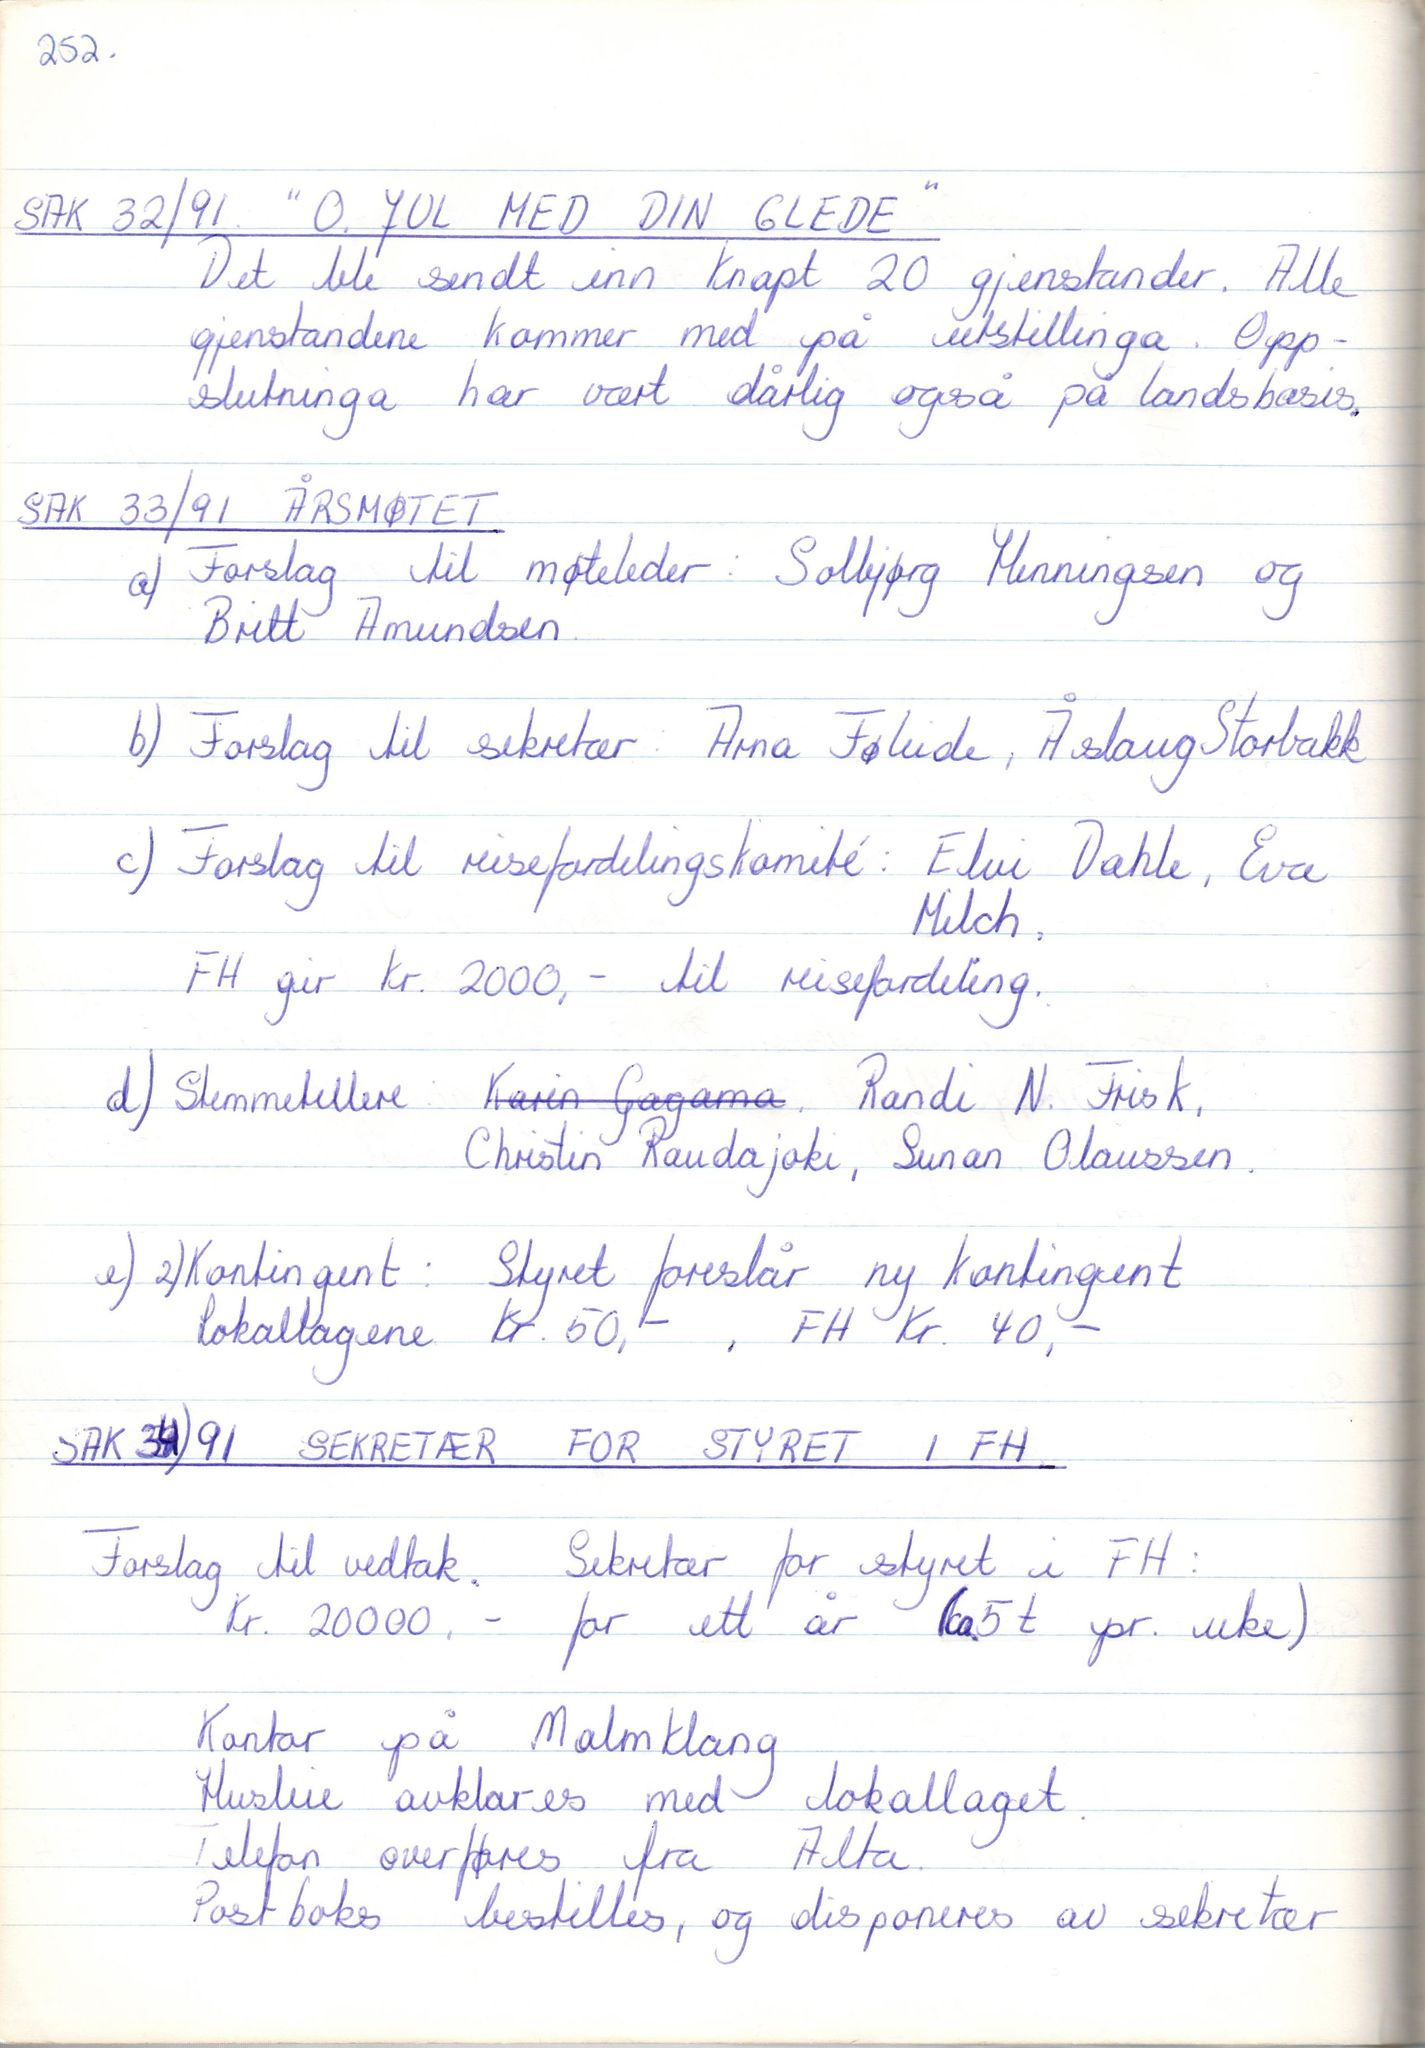 252.
SAK 32/91. "O. JUL MED DIN GLEDE"
Det ble sendt inn knapt 20 gjenstander. Alle
gjenstandene kommer med på utstillinga. Opp-
slutninga har vært dårlig også på landsbasis.
SAK 33/91 ÅRSMØTET
a) Forslag til møteleder: Solbjørg Henningsen og
Britt Amundsen.
b) Forslag til sekretær: Arna Føleide, Åslaug Storbakk
c) Forslag til reisefordelingskomité: Elvi Dahle, Eva
Milch.
FH gir kr. 2000,- til reisefordeling.
d) Stemmetellere: Karin Gagama. Randi N. Frisk,
Christin Raudajoki, Sunan Olaussen.
e) 2) Kontingent: Styret foreslår ny kontingent
lokallagene kr. 50,- , FH kr. 40,-
SAK 34/91 SEKRETÆR FOR STYRET I FH.
Forslag til vedtak. Sekretær for styret i FH:
Kr. 20000,- for ett år (ca. 5 t pr. uke)
Kontor på Malmklang
Husleie avklares med lokallaget.
Telefon overføres fra Alta.
Postboks bestilles, og disponeres av sekretær